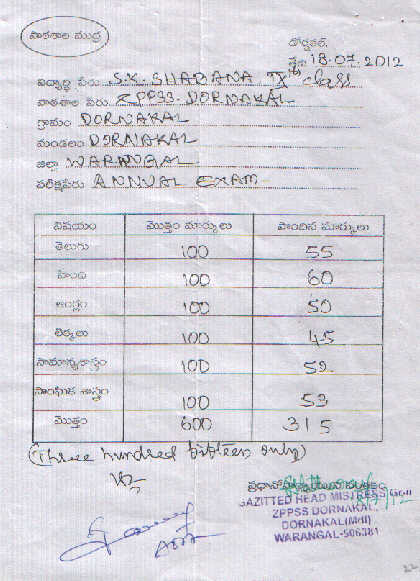 పాఠశాల ముద్ర
డోర్నకల్,
తేది 18.07.2012
విద్యార్థి పేరు S.K. SHABANA IXth class
పాఠశాల పేరు ZPSS. DORNAKAL
గ్రామం DORNAKAL
మండలం DORNAKAL
జిల్లా WARANGAL
పరీక్షపేరు ANNUAL EXAM
విషయం మొత్తం మార్కులు పొందిన మార్కులు
తెలుగు 100 55
హింది 100 60
ఆంగ్లం 100 50
లెక్కలు 100 45
సామాన్యశాస్త్రం 100 52
సాంఘిక శాస్త్రం 100 53
మొత్తం 600 315
(Three hundred fifteen only)
ప్రధానోపాధ్యాయుని సంతకం
GAZITTED HEAD MISTRESS Gr-II
ZPPSS DORNAKAL
DORNAKAL(Mdl)
WARANGAL-506381